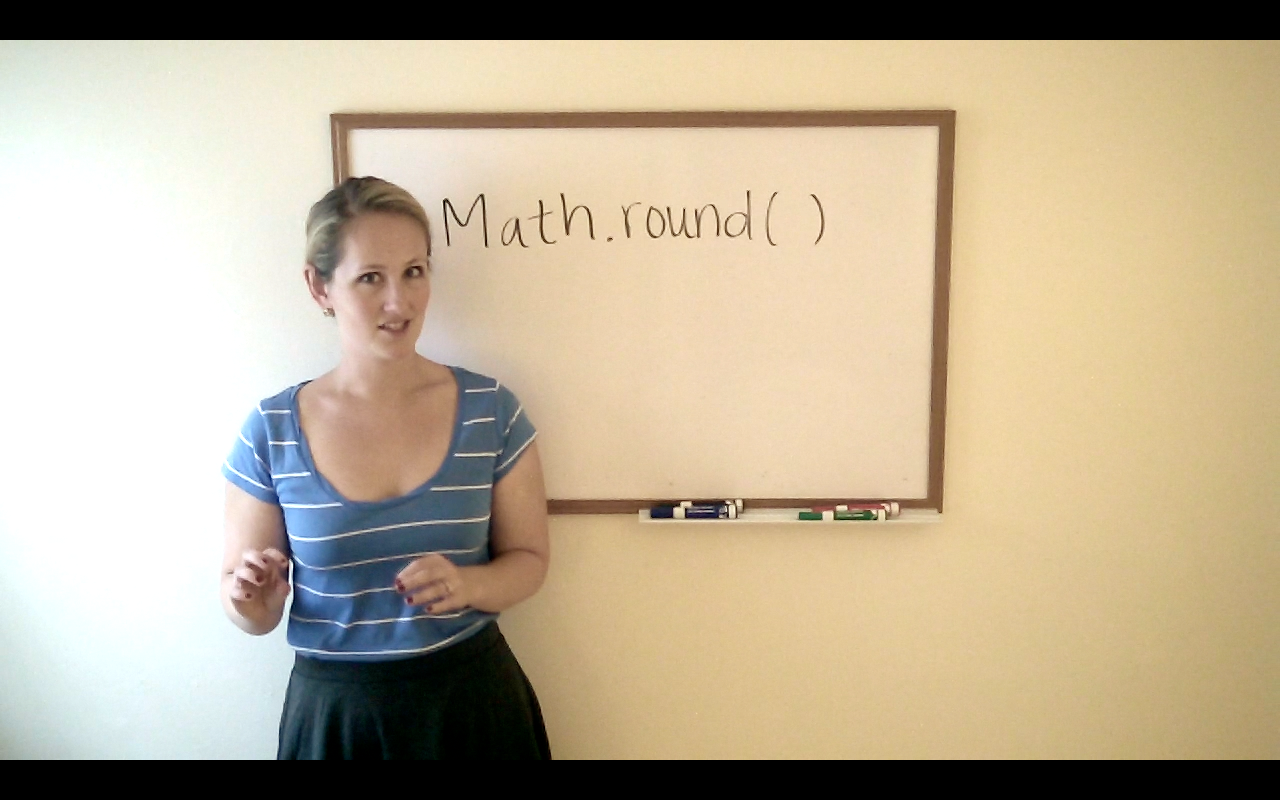 Math.round( )